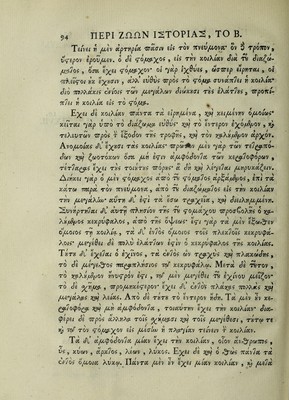 94 ΠΕΡΙ ΖΩΩΝ ΙΣΤΟΡΙΑΣ, ΤΟ Β.
Τείνει ἡ μὲν ἀρτηρία πᾶσιν εἰς τὸν πνεύμονα· ὃν δὲ τρόπον,
ὕστερον ἐροῦμεν. ὁ δὲ στόμαχος, εἰς τὴν κοιλίαν διὰ τοῦ διαζώ-
ματος, ὅσα ἔχει στόμαχον· οἱ γὰρ ἰχθύες, ὥσπερ εἴρηται, οἱ
πλεῖστοι οὐκ ἔχουσιν, ἀλλ' εὐθὺς πρὸς τὸ στόμα συνάπτει ἡ κοιλία·
διὸ πολλάκις ἐνίοις τῶν μεγάλων διώκουσι τοὺς ἐλάττους, προπί-
πτει ἡ κοιλία εἰς τὸ στόμα.
Ἔχει δὲ κοιλίαν πάντα τὰ εἰρημένα, καὶ κειμένην ὁμοίως·
κεῖται γὰρ ὑπὸ τὸ διάζωμα εὐθύς· καὶ τὸ ἔντερον ἐχόμενον, καὶ
τελευτῶν πρὸς τὴν ἔξοδον τῆς τροφῆς, καὶ τὸν καλούμενον ἀρχόν.
Ἀνομοίας δ' ἔχουσι τὰς κοιλίας· πρῶτον μὲν γὰρ τῶν τετραπό-
δων καὶ ζωοτόκων ὅσα μή ἐστιν ἀμφόδοντα τῶν κερατοφόρων,
τέτταρας ἔχει τὴν τοιούτων πόρων· ἃ δὴ καὶ λέγεται μηρυκάζειν.
Διήκει γὰρ ὁ μὲν στόμαχος ἀπὸ τοῦ στόματος ἀρξάμενος, ἐπὶ τὰ
κάτω παρὰ τὸν πνεύμονα, ἀπὸ τοῦ διαζώματος εἰς τὴν κοιλίαν
τὴν μεγάλην· αὕτη δ' ἐστὶ τὰ ἔσω τραχεῖα, καὶ διειλημμένη.
Συνήρτηται δ' αὐτῇ πλησίον τῆς τοῦ στομάχου προσβολῆς ὁ κα-
λούμενος κεκρύφαλος, ἀπὸ τῆς ὄψεως· ἔστι γὰρ τὰ μὲν ἔξωθεν
ὅμοιος τῇ κοιλίᾳ, τὰ δ' ἐντὸς ὅμοιος τοῖς πλεκτοῖς κεκρυφά-
λοις· μεγέθει δὲ πολὺ ἐλάττων ἐστὶν ὁ κεκρύφαλος τῆς κοιλίας.
Τούτου δ' ἔχεται ὁ ἐχῖνος, τὰ ἐντὸς ὢν τραχὺς καὶ πλακώδης,
τὸ δὲ μέγεθος παραπλήσιος τῷ κεκρυφάλῳ. Μετὰ δὲ τοῦτον,
τὸ καλούμενον ἤνυστρόν ἐστι, τῷ μὲν μεγέθει τοῦ ἐχίνου μεῖζον·
τὸ δὲ σχῆμα, προμηκέστερον· ἔχει δ' ἐντὸς πλάκας πολλὰς καὶ
μεγάλας λείας. Ἀπὸ δὲ τούτου τὸ ἔντερον ἤδη. Τὰ μὲν οὖν κε-
ρατοφόρα καὶ μὴ ἀμφόδοντα, τοιαύτην ἔχει τὴν κοιλίαν· δια-
φέρει δὲ πρὸς ἄλληλα τοῖς σχήμασι καὶ τοῖς μεγέθεσι, τούτων τε
καὶ τῷ τὸν στόμαχον εἰς μέσην ἢ πλαγίαν τείνειν τὴν κοιλίαν.
Τὰ δ' ἀμφόδοντα μίαν ἔχει τὴν κοιλίαν, οἷον ἄνθρωπος,
ὗς, κύων, ἄρκτος, λέων, λύκος. Ἔχει δὲ καὶ ὁ θὼς πάντα τὰ
ἐντὸς ὅμοια λύκῳ. Πάντα μὲν οὖν ἔχει μίαν κοιλίαν, καὶ μετὰ